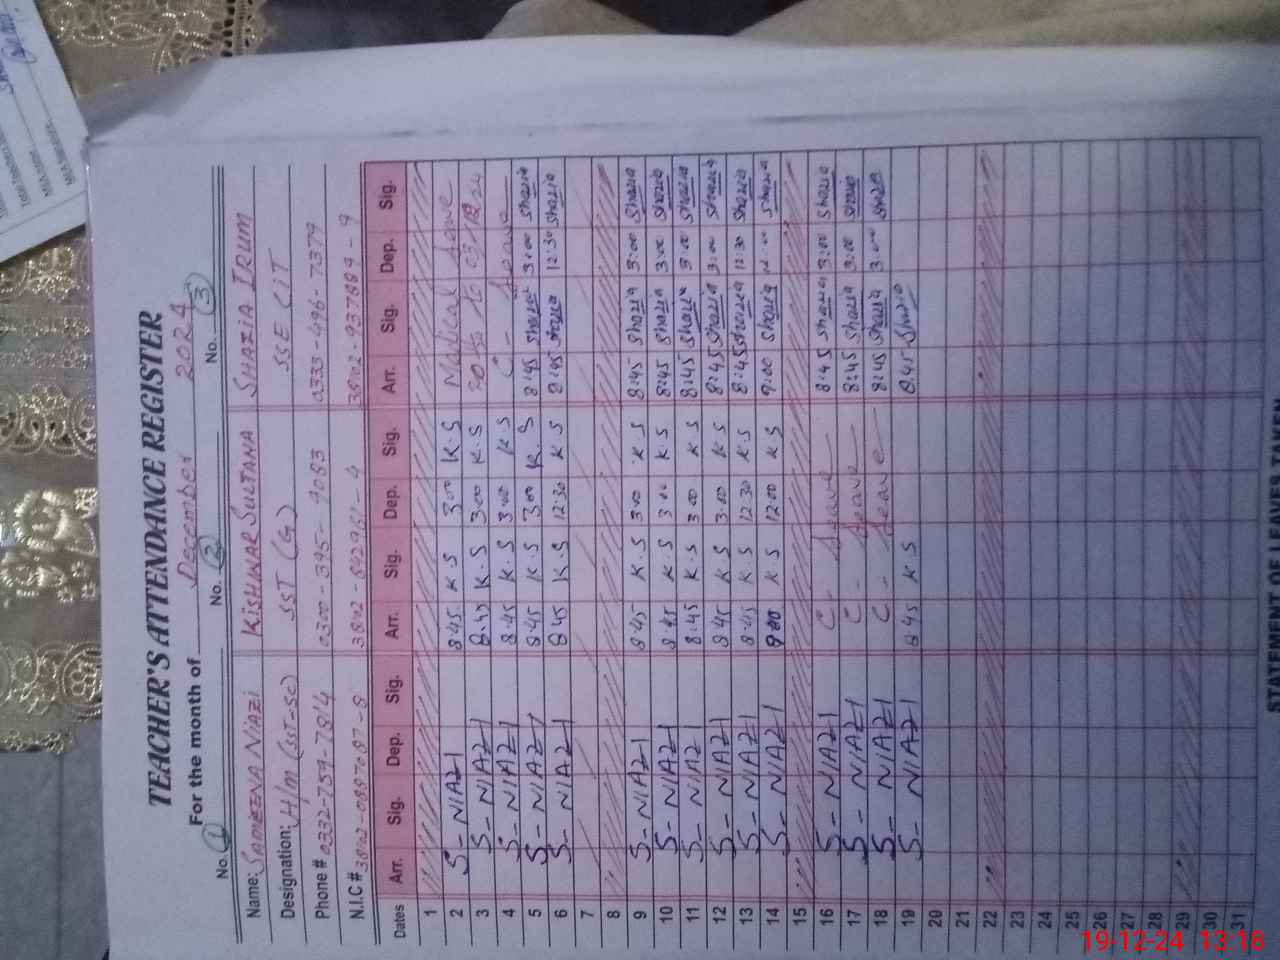 TEACHER'S ATTENDANCE REGISTER
For the month of December 2024
No. 1 No. 2 No. 3
Name: SAMEENA NIAZI KISHWAR SULTANA SHAZIA IRUM
Designation: H/m (SST-Sc) SST (G) SSE CIT
Phone # 0332-759-7814 0300-395-9083 0333-496-7379
N.I.C #
Dates Arr. Sig. Dep. Sig. Arr. Sig. Dep. Sig. Arr. Sig. Dep. Sig.
1
2 S-NIAZI 8:45 K.S 3:00 K.S Medical Leave
3 S-NIAZI 8:45 K.S 3:00 K.S
4 S-NIAZI 8:45 K.S 3:00 K.S C - Leave
5 S-NIAZI 8:45 K.S 3:00 K.S 8:45 Shazia 3:00 Shazia
6 S-NIAZI 8:45 K.S 12:30 K.S 8:45 Shazia 12:30 Shazia
7
8
9 S-NIAZI 8:45 K.S 3:00 K.S 8:45 Shazia 3:00 Shazia
10 S-NIAZI 8:45 K.S 3:00 K.S 8:45 Shazia 3:00 Shazia
11 S-NIAZI 8:45 K.S 3:00 K.S 8:45 Shazia 3:00 Shazia
12 S-NIAZI 8:45 K.S 3:00 K.S 8:45 Shazia 3:00 Shazia
13 S-NIAZI 8:45 K.S 12:30 K.S 8:45 Shazia 12:30 Shazia
14 S-NIAZI 9:00 K.S 12:00 K.S 9:00 Shazia 12:00 Shazia
15
16 S-NIAZI C - Leave 8:45 Shazia 3:00 Shazia
17 S-NIAZI C - Leave 8:45 Shazia 3:00 Shazia
18 S-NIAZI C - Leave 8:45 Shazia 3:00 Shazia
19 S-NIAZI 8:45 K.S 8:45 Shazia
20
21
22
23
24
25
26
27
28
29
30
31
STATEMENT OF LEAVES TAKEN
19-12-24 13:18